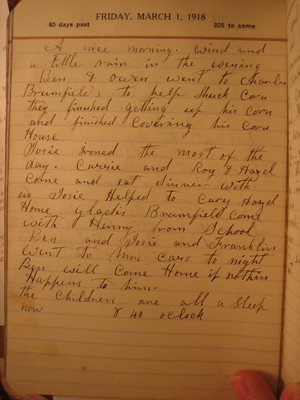 FRIDAY, MARCH 1, 1918
60 days past 305 to come
A nice morning. Wind and
a little rain in the evening
Ben & Owen went to Charles
Brumfield,s to help Shuck Corn
they finished getting up his Corn
and finished Covering his Corn
House
Josie Ironed the most of the
day. Carrie and Roy & Hazel
Come and eat dinner with
us Josie Helped to Cary Hazel
Home Gladis Brumfield Come
with Henny from School
Ben and Josie and Franklin
went to Mrs Cars to night
Ben will Come Home if nothin
Happens to him
the Childrens are all a sleep
now 8 40 oclock